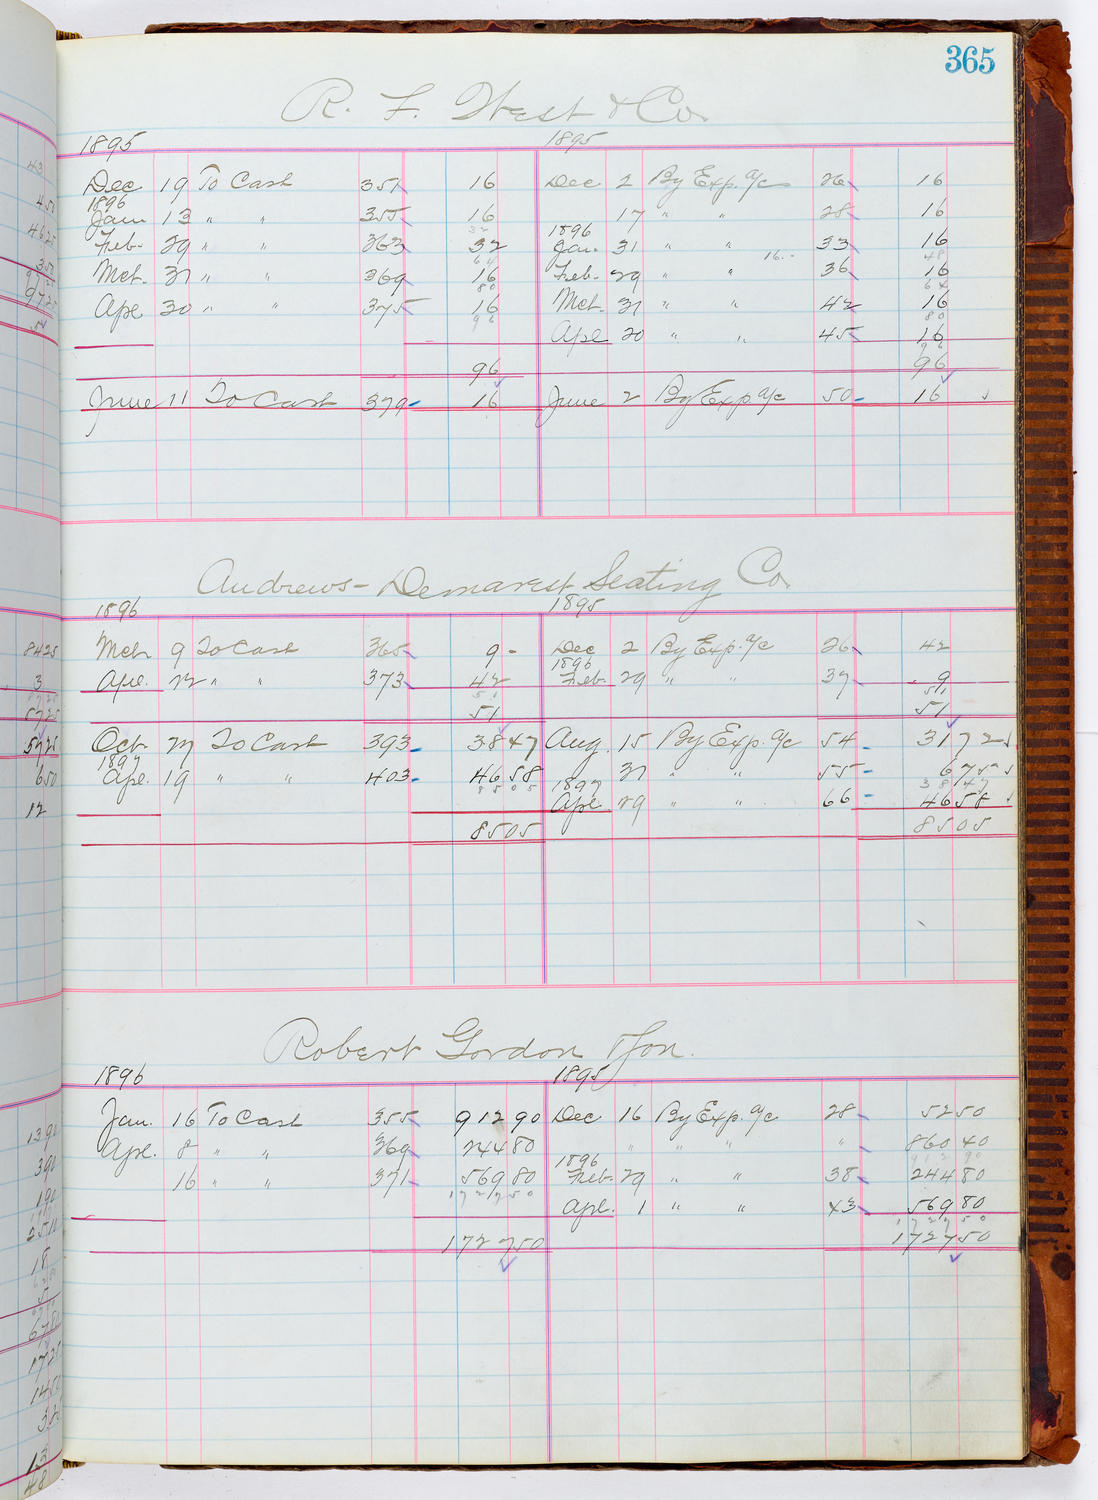 365
R. F. West & Co.
1895 1895
Dec 19 To Cash 351 16 Dec 2 By Exp. a/c 26 16
1896
Jan 13 " " 355 16 17 " " 28 16
32 1896
Feb. 29 " " 363 32 Jan. 31 " " 33 16
64 16.- 48
Mch. 31 " " 369 16 Feb. 29 " " 36 16
80 64
Apl 30 " " 375 16 Mch. 31 " " 42 16
96 80
Apl 30 " " 45 16
96
96 96
June 11 To Cash 379 16 June 2 By Exp a/c 50 16
Andrews-Demarest Seating Co.
1896 1895
Mch 9 To Cash 365 9 - Dec 2 By Exp. a/c 26 42
1896
Apl. 22 " " 373 42 Feb. 29 " " 37 9
51 51
51 51
Oct. 27 To Cash 393 38 47 Aug. 15 By Exp. a/c 54 31 72
1897
Apl. 19 " " 403 46 58 31 " " 55 6 75
85 05 1897 38 47
Apl 29 " " 66 46 58
85 05 85 05
Robert Gordon & Son.
1896 1895
Jan. 16 To Cash 355 912 90 Dec 16 By Exp. a/c 28 52 50
Apl. 8 " " 369 244 80 " " " " 860 40
1896 912 90
16 " " 371 569 80 Feb. 29 " " 38 244 80
1727 50
Apl. 1 " " 43 569 80
1727 50
1727 50 1727 50